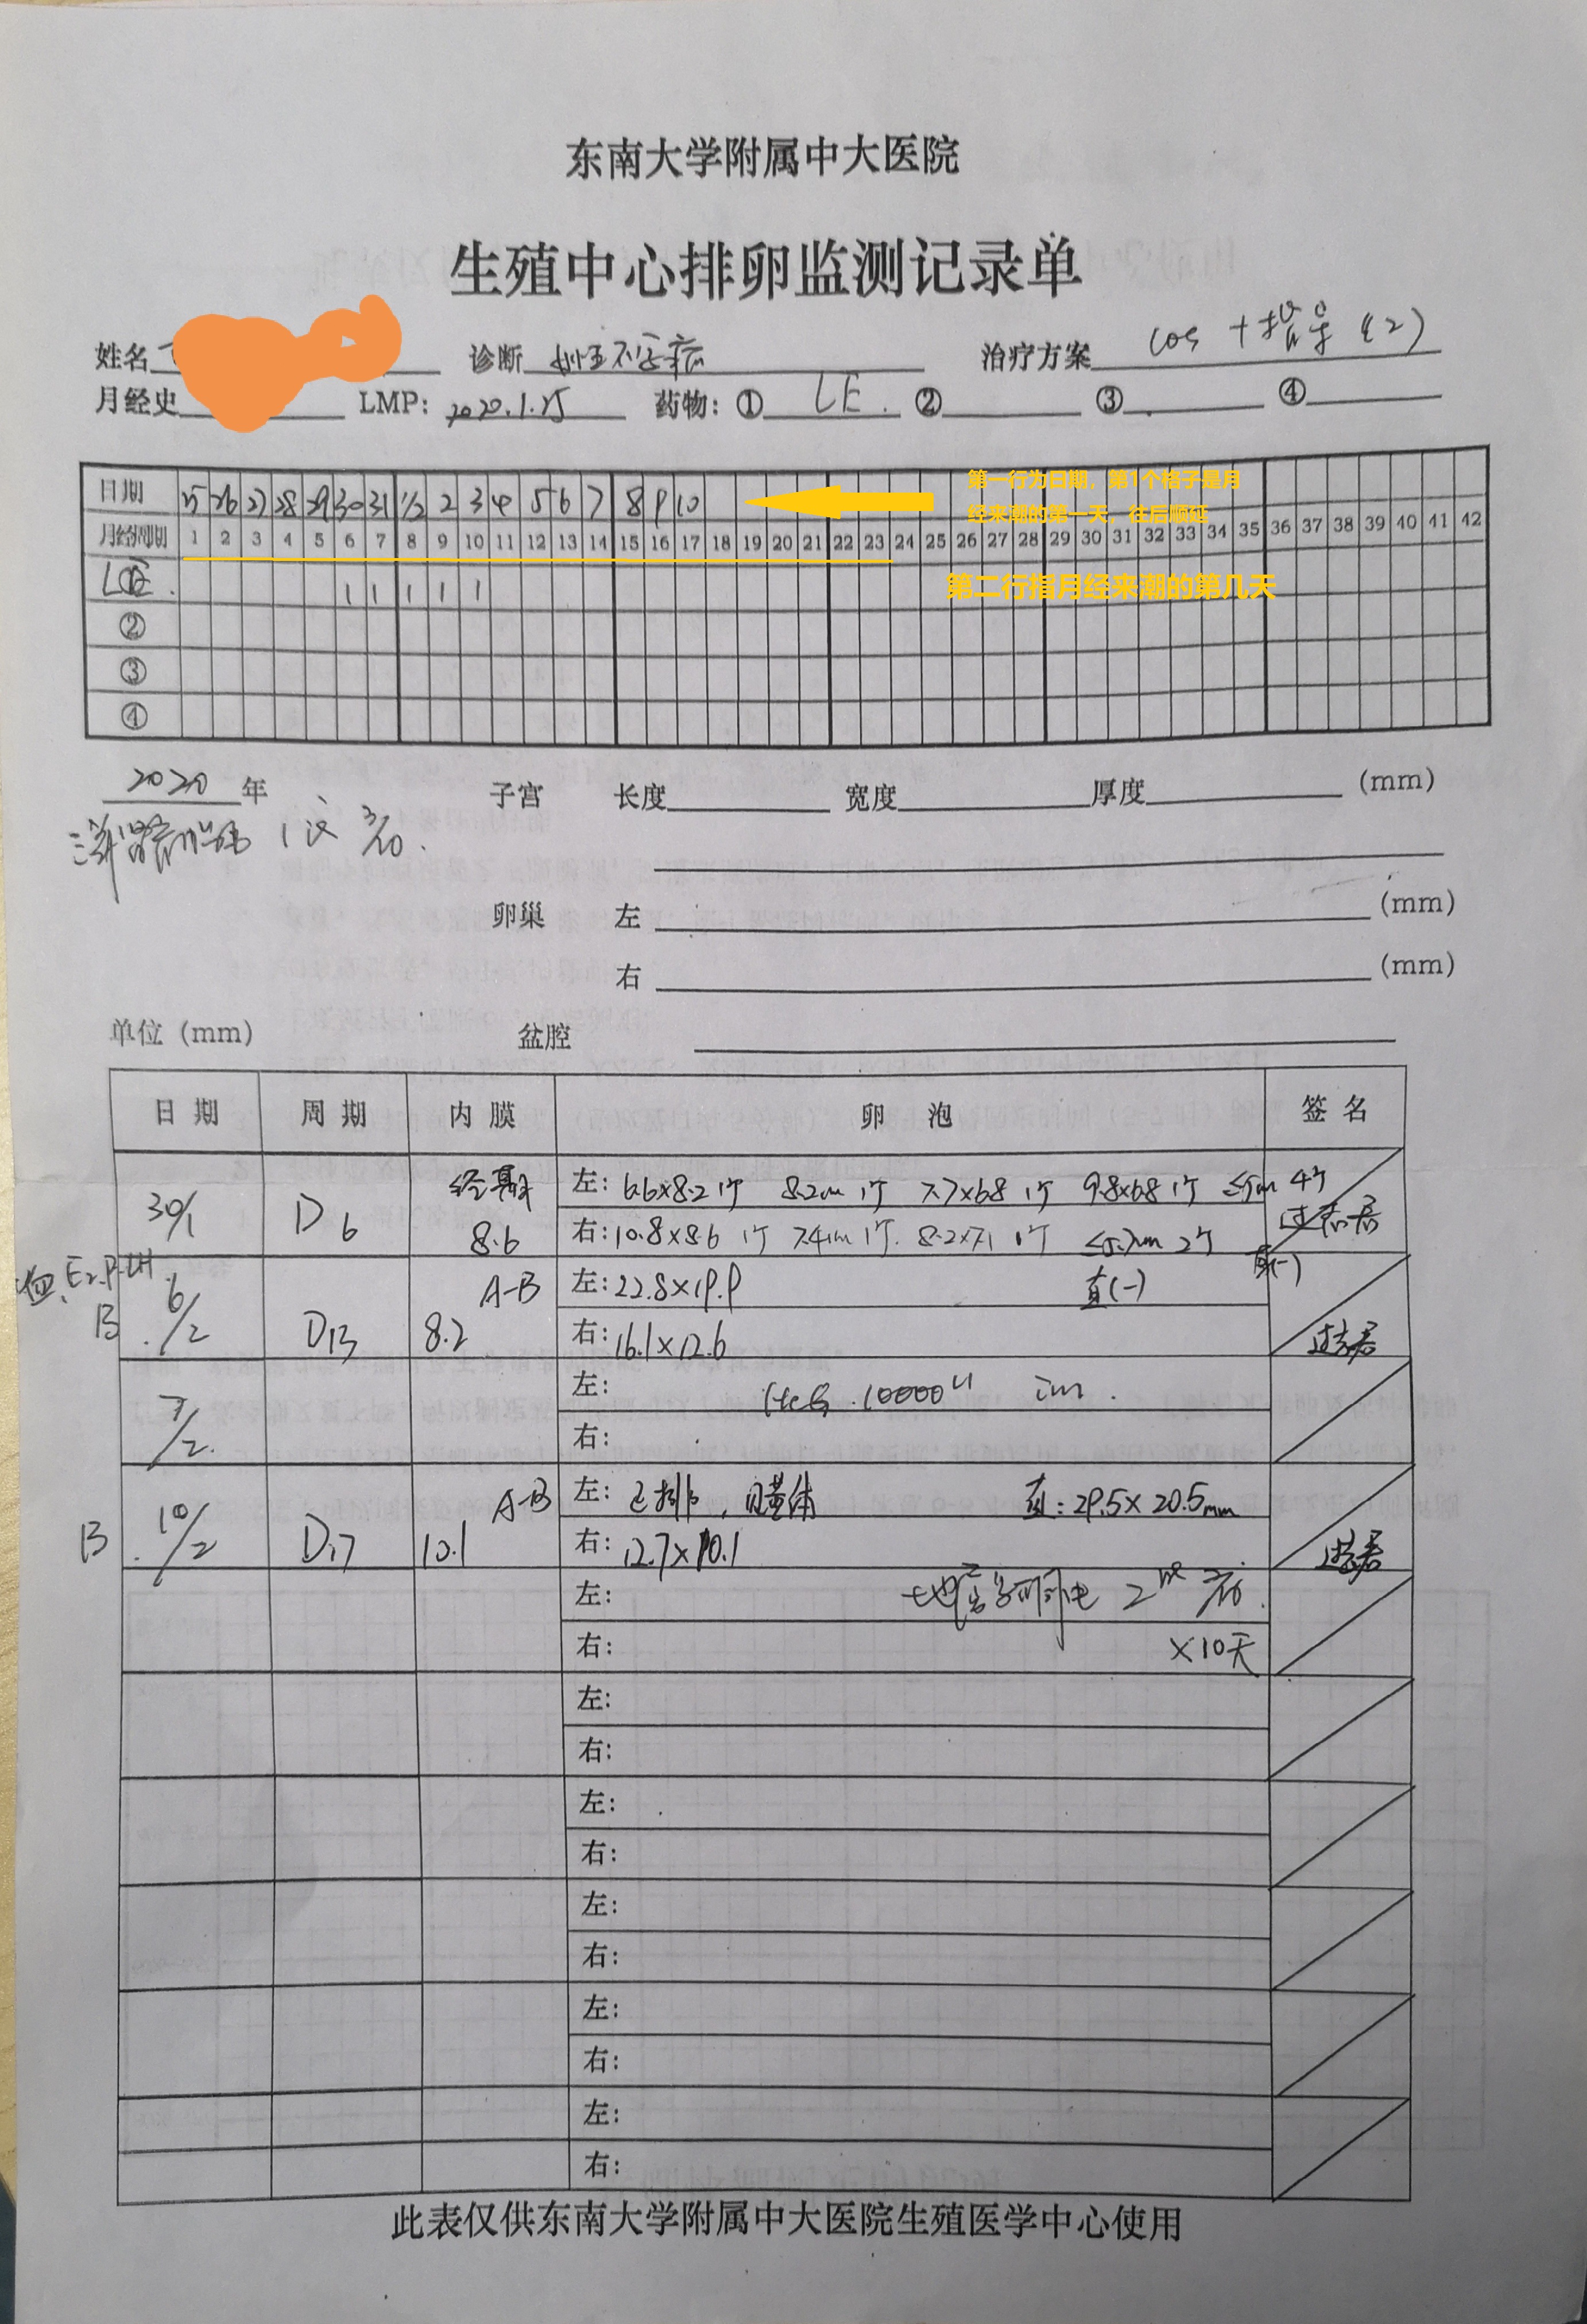 东南大学附属中大医院
生殖中心排卵监测记录单
姓名 诊断 治疗方案 cos + 指导 (2)
月经史 LMP: 2020.1.25 药物: ① LE. ② ③ ④
日期 25 26 27 28 29 30 31 1/2 2 3 4 5 6 7 8 9 10
第一行为日期，第1个格子是月
经来潮的第一天，往后顺延
月经周期 1 2 3 4 5 6 7 8 9 10 11 12 13 14 15 16 17 18 19 20 21 22 23 24 25 26 27 28 29 30 31 32 33 34 35 36 37 38 39 40 41 42
LE. 1 1 1 1 1
第二行指月经来潮的第几天
②
③
④
2020 年 子宫 长度 宽度 厚度 (mm)
1
卵巢 左 (mm)
右 (mm)
单位 (mm) 盆腔
日期 周期 内膜 卵泡 签名
30/1 D6 经期 8.6
左: 6.6x8.2 1个 8.2mm 1个 7.7x6.8 1个 9.8x6.8 1个 ≤5mm 4个
右: 10.8x8.6 1个 7.4mm 1个. 8.2x7.1 1个 2个
血, E2.P.LH
B 6/2 D13 8.2 A-B
左: 22.8x19.9 直(-)
直(-)
右: 16.1x12.6
7/2.
左: HCG 10000u im.
右:
B 10/2 D17 10.1 A-B
左: 已排, 见黄体 直: 29.5x20.5mm
右: 12.7x10.1
左: 地屈孕酮
右: x10天
左:
右:
左:
右:
左:
右:
左:
右:
左:
右:
此表仅供东南大学附属中大医院生殖医学中心使用